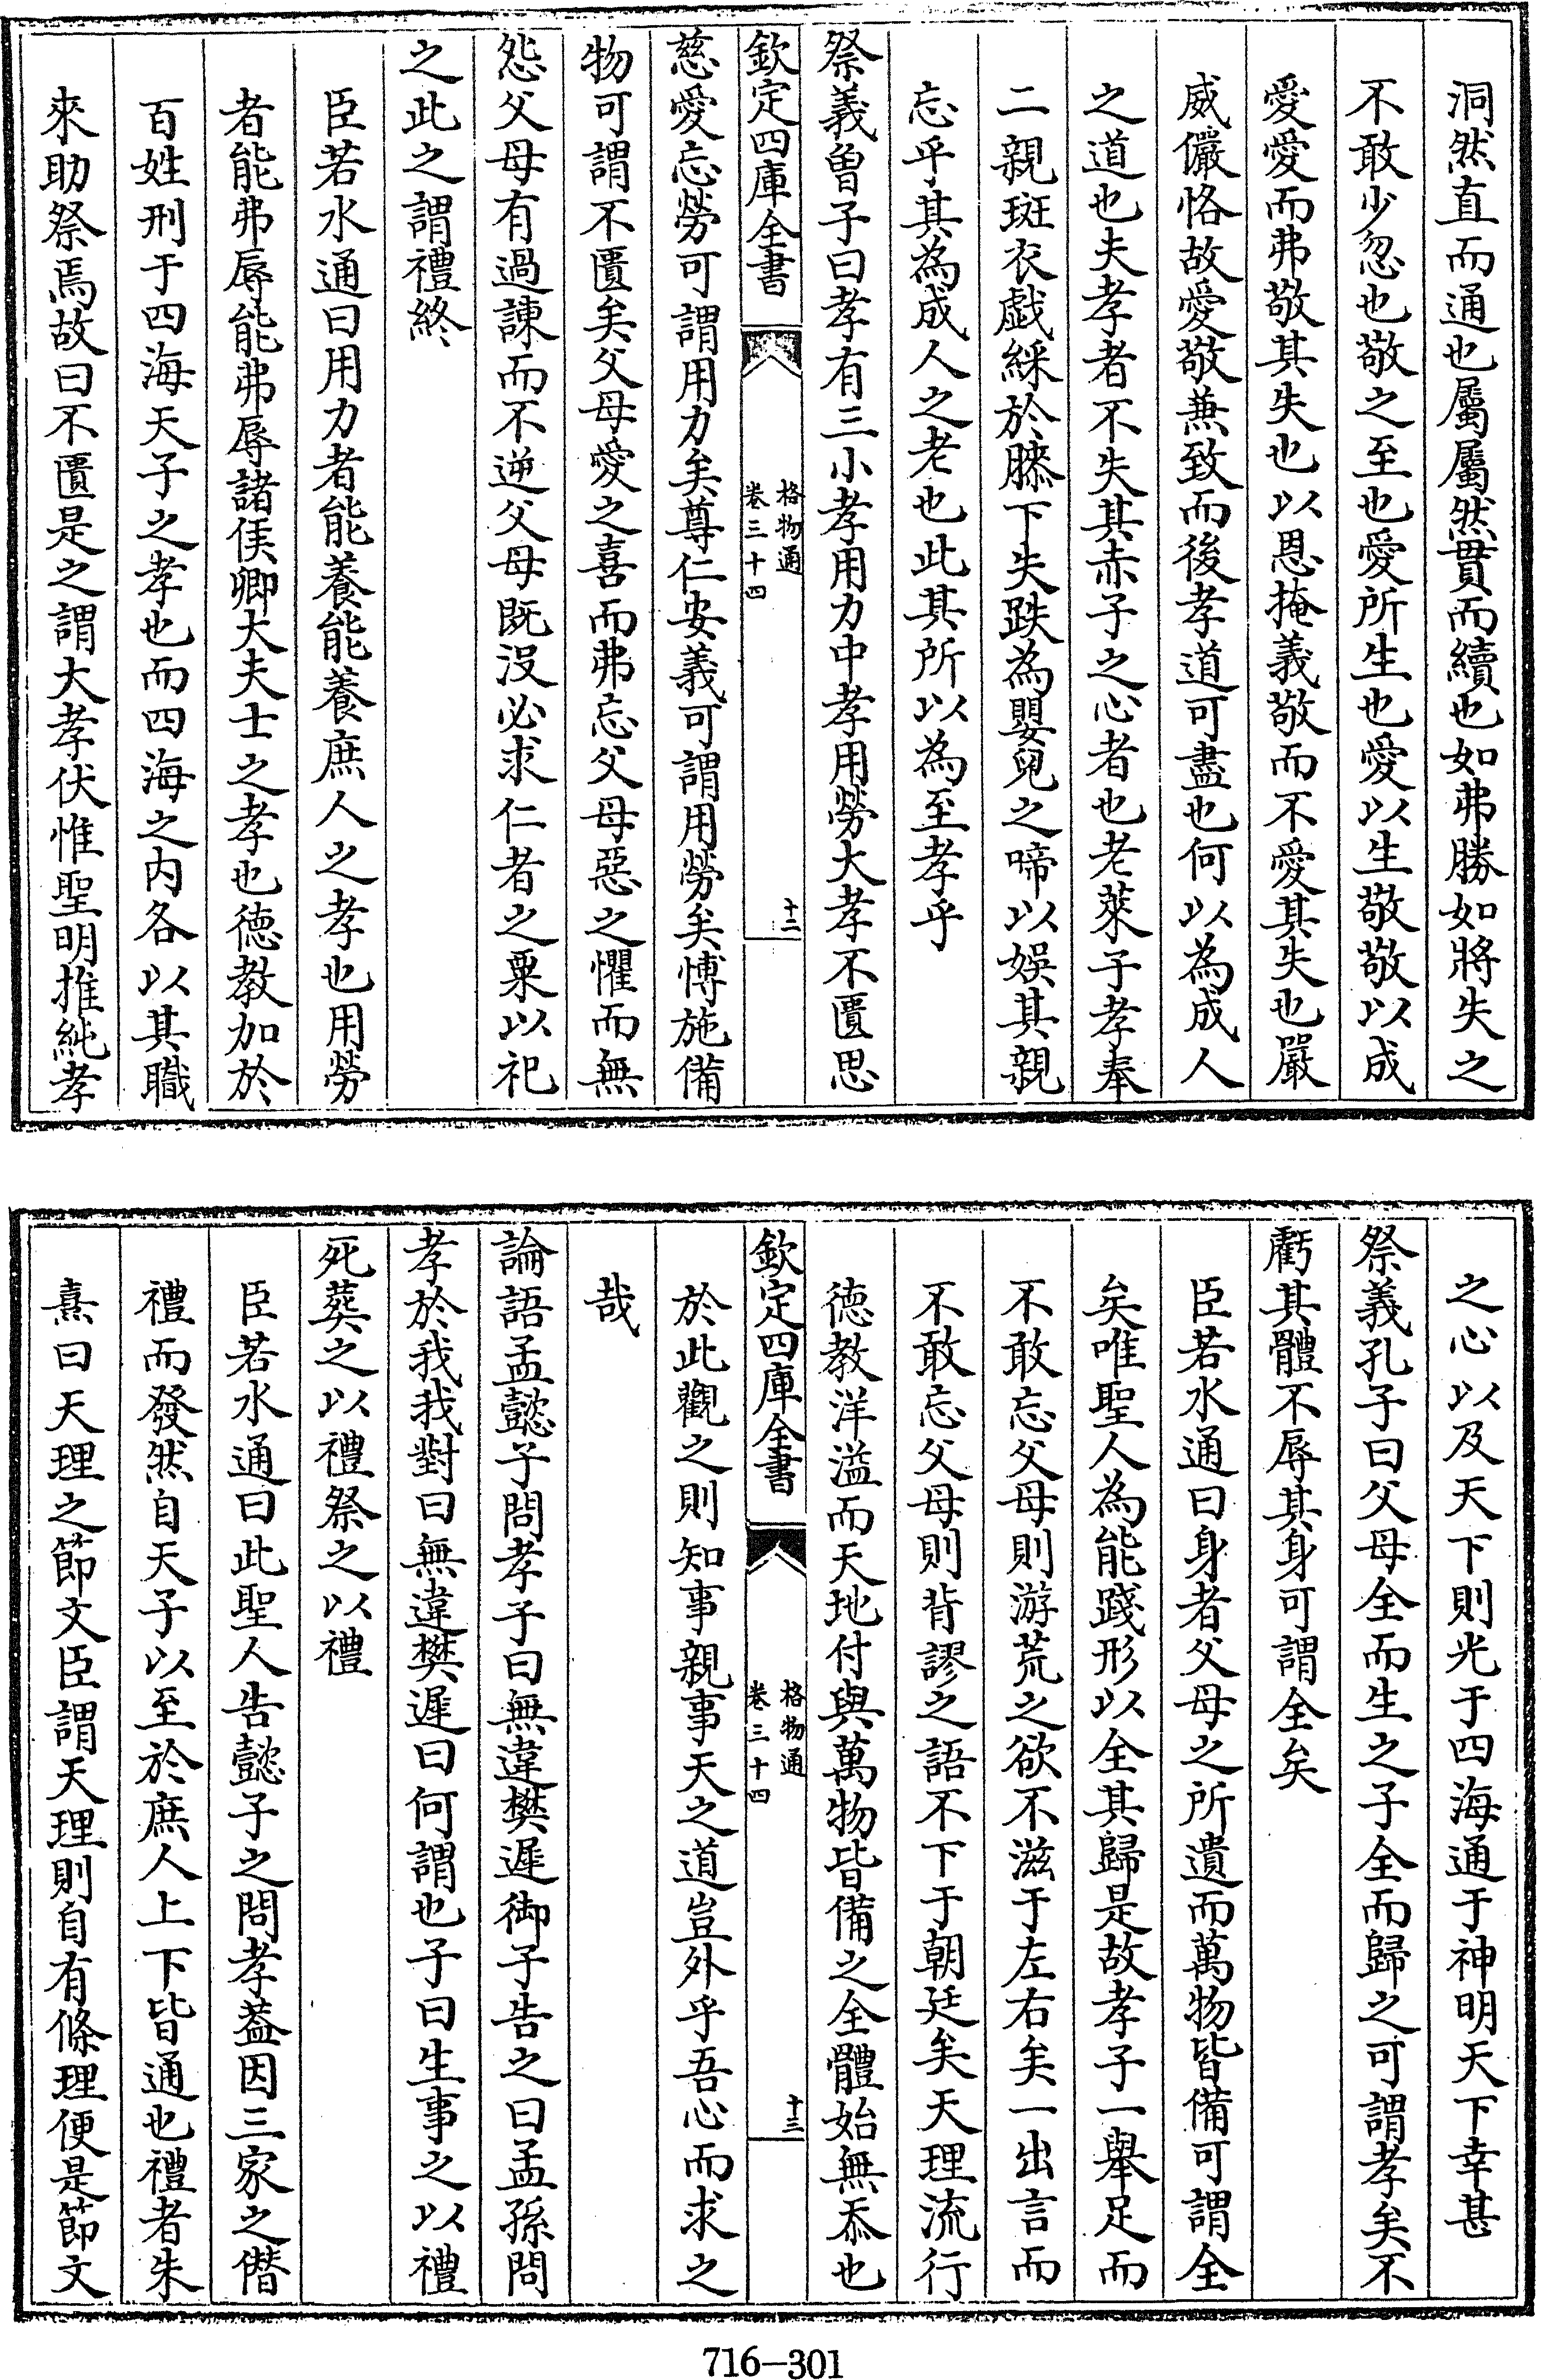 洞然直而通也屬屬然貫而續也如弗勝如將失之
不敢少忽也敬之至也愛所生也愛以生敬敬以成
愛愛而弗敬其失也以恩掩義敬而不愛其失也嚴
威儼恪故愛敬兼致而後孝道可盡也何以為成人
之道也夫孝者不失其赤子之心者也老萊子孝奉
二親斑衣戱綵於膝下失跌為嬰兒之啼以娛其親
忘乎其為成人之老也此其所以為至孝乎
祭義曽子曰孝有三小孝用力中孝用勞大孝不匱思
欽定四庫全書
格物通
卷三十四
十二
慈愛忘勞可謂用力矣尊仁安義可謂用勞矣博施備
物可謂不匱矣父母愛之喜而弗忘父母惡之懼而無
怨父母有過諫而不逆父母既沒必求仁者之粟以祀
之此之謂禮終
臣若水通曰用力者能養能養庶人之孝也用勞
者能弗辱能弗辱諸侯卿大夫士之孝也德教加於
百姓刑于四海天子之孝也而四海之內各以其職
來助祭焉故曰不匱是之謂大孝伏惟聖明推純孝
之心以及天下則光于四海通于神明天下幸甚
祭義孔子曰父母全而生之子全而歸之可謂孝矣不
虧其體不辱其身可謂全矣
臣若水通曰身者父母之所遺而萬物皆備可謂全
矣唯聖人為能踐形以全其歸是故孝子一舉足而
不敢忘父母則游荒之欲不滋于左右矣一出言而
不敢忘父母則背謬之語不下于朝廷矣天理流行
德教洋溢而天地付與萬物皆備之全體始無忝也
欽定四庫全書
格物通
卷三十四
十三
於此觀之則知事親事天之道豈外乎吾心而求之
哉
論語孟懿子問孝子曰無違樊遲御子告之曰孟孫問
孝於我我對曰無違樊遲曰何謂也子曰生事之以禮
死葬之以禮祭之以禮
臣若水通曰此聖人告懿子之問孝葢因三家之僭
禮而發然自天子以至於庶人上下皆通也禮者朱
熹曰天理之節文臣謂天理則自有條理便是節文
716-301